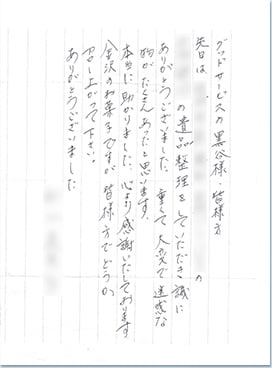 グッドサービスの黒谷様・皆様方
先日は、の
の遺品整理をしていただき誠に
ありがとうございました。重くて大変で迷惑な
物がたくさんあったと思います。
本当に助かりました。心より感謝いたしております
金沢のお菓子ですが皆様方でどうか
召し上がって下さい。
ありがとうございました